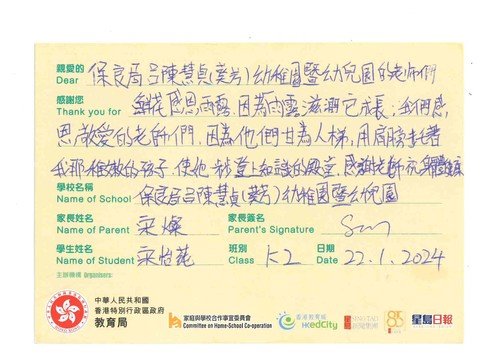 親愛的
Dear 保良局呂陳慧貞(葵芳)幼稚園暨幼兒園的老師們
感謝您
Thank you for 鮮花感恩雨露,因為雨露滋潤它成長;我們感
恩敬愛的老師們,因為他們甘為人梯,用肩膀托著
我那稚嫩的孩子,使他 登上知識的殿堂,感謝老師祝 身體健康
學校名稱
Name of School 保良局呂陳慧貞(葵芳)幼稚園暨幼兒園
家長姓名
Name of Parent 宋燦
家長簽名
Parent's Signature
學生姓名
Name of Student 宋怡苑
班別
Class K2
日期
Date 22.1.2024
主辦機構 Organisers:
中華人民共和國
香港特別行政區政府
教育局
家庭與學校合作事宜委員會
Committee on Home-School Co-operation
香港教育城
HKedCity
SING TAO
新聞集團
85
星島日報